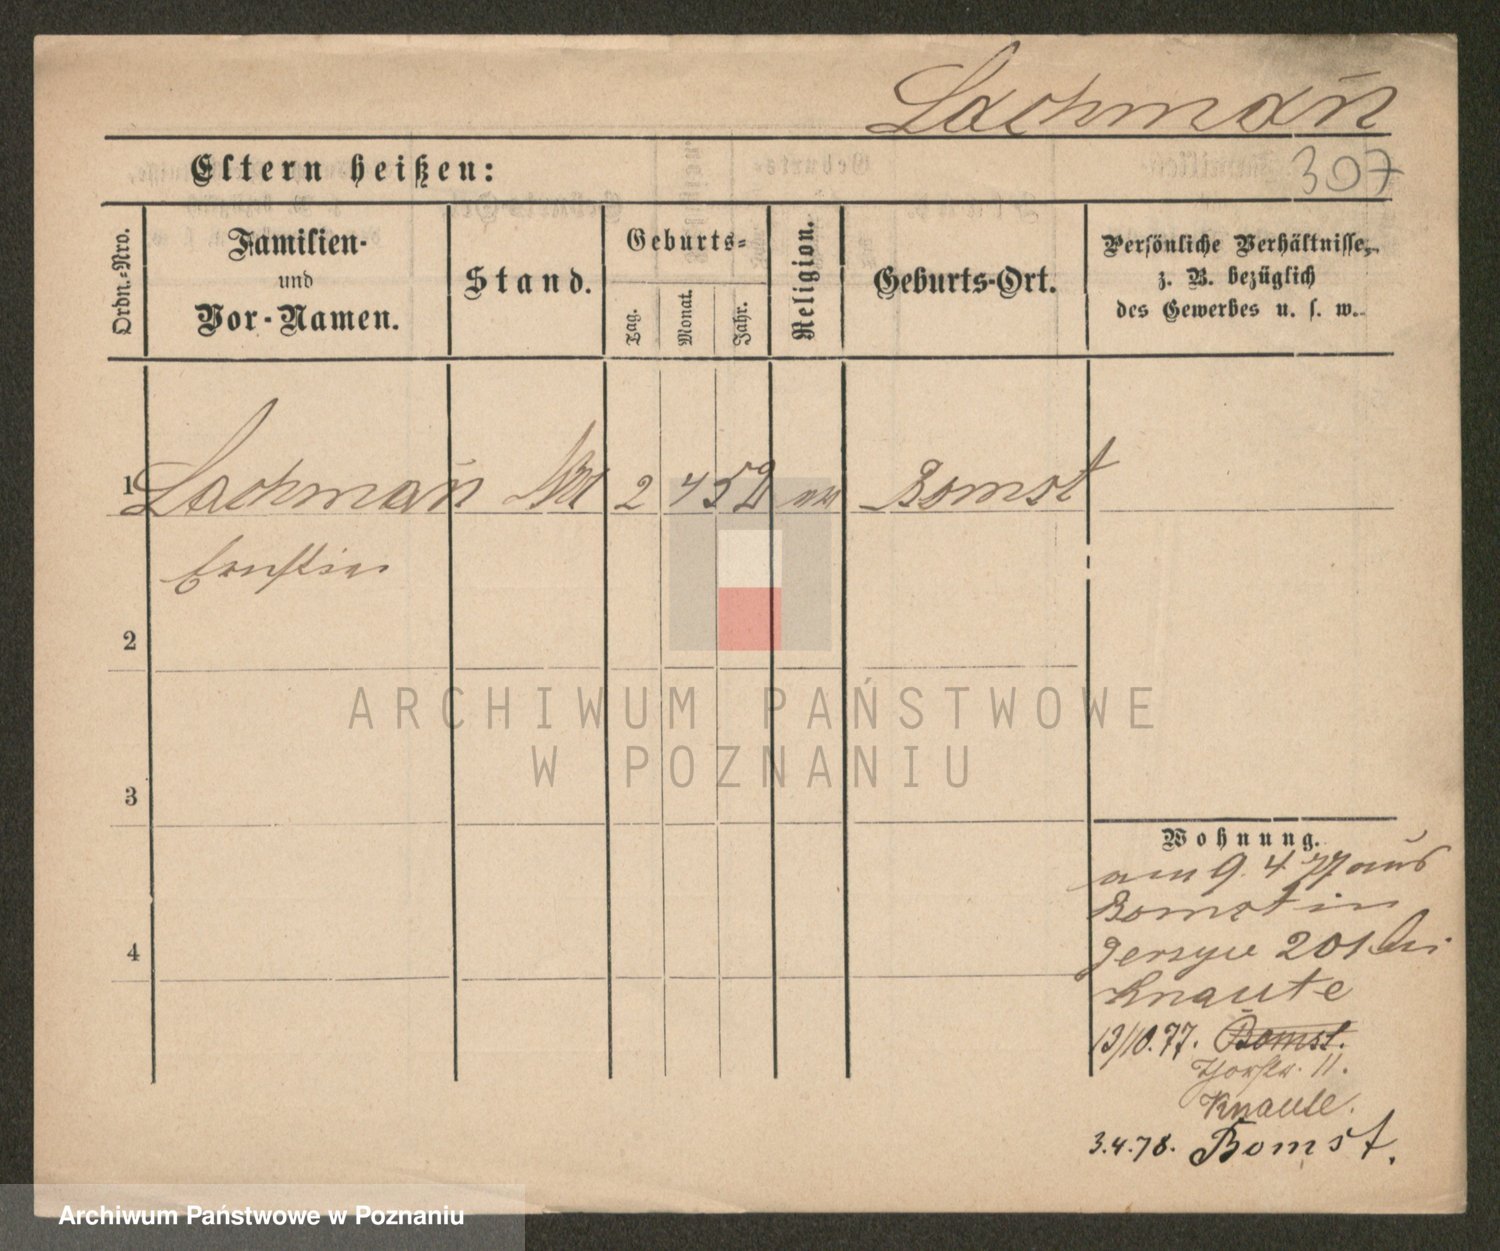 Lachman̄
Eltern heißen:
307
Ordn.-Nro.
Familien-
und
Vor-Namen.
Stand.
Geburts-
Tag.
Monat.
Jahr.
Religion.
Geburts-Ort.
Persönliche Verhältnisse,
z. B. bezüglich
des Gewerbes u. s. w.
1 Lachman̄ 2 4 52 Bomst
Ernstine
2
3
4
Wohnung.
am 9. 4 77 aus
Bomst in
Jersyce 201 bei
Knaute
13/10.77. Bomst.
11.
Knaute.
3.4.78. Bomst.
ARCHIWUM PAŃSTWOWE
W POZNANIU
Archiwum Państwowe w Poznaniu